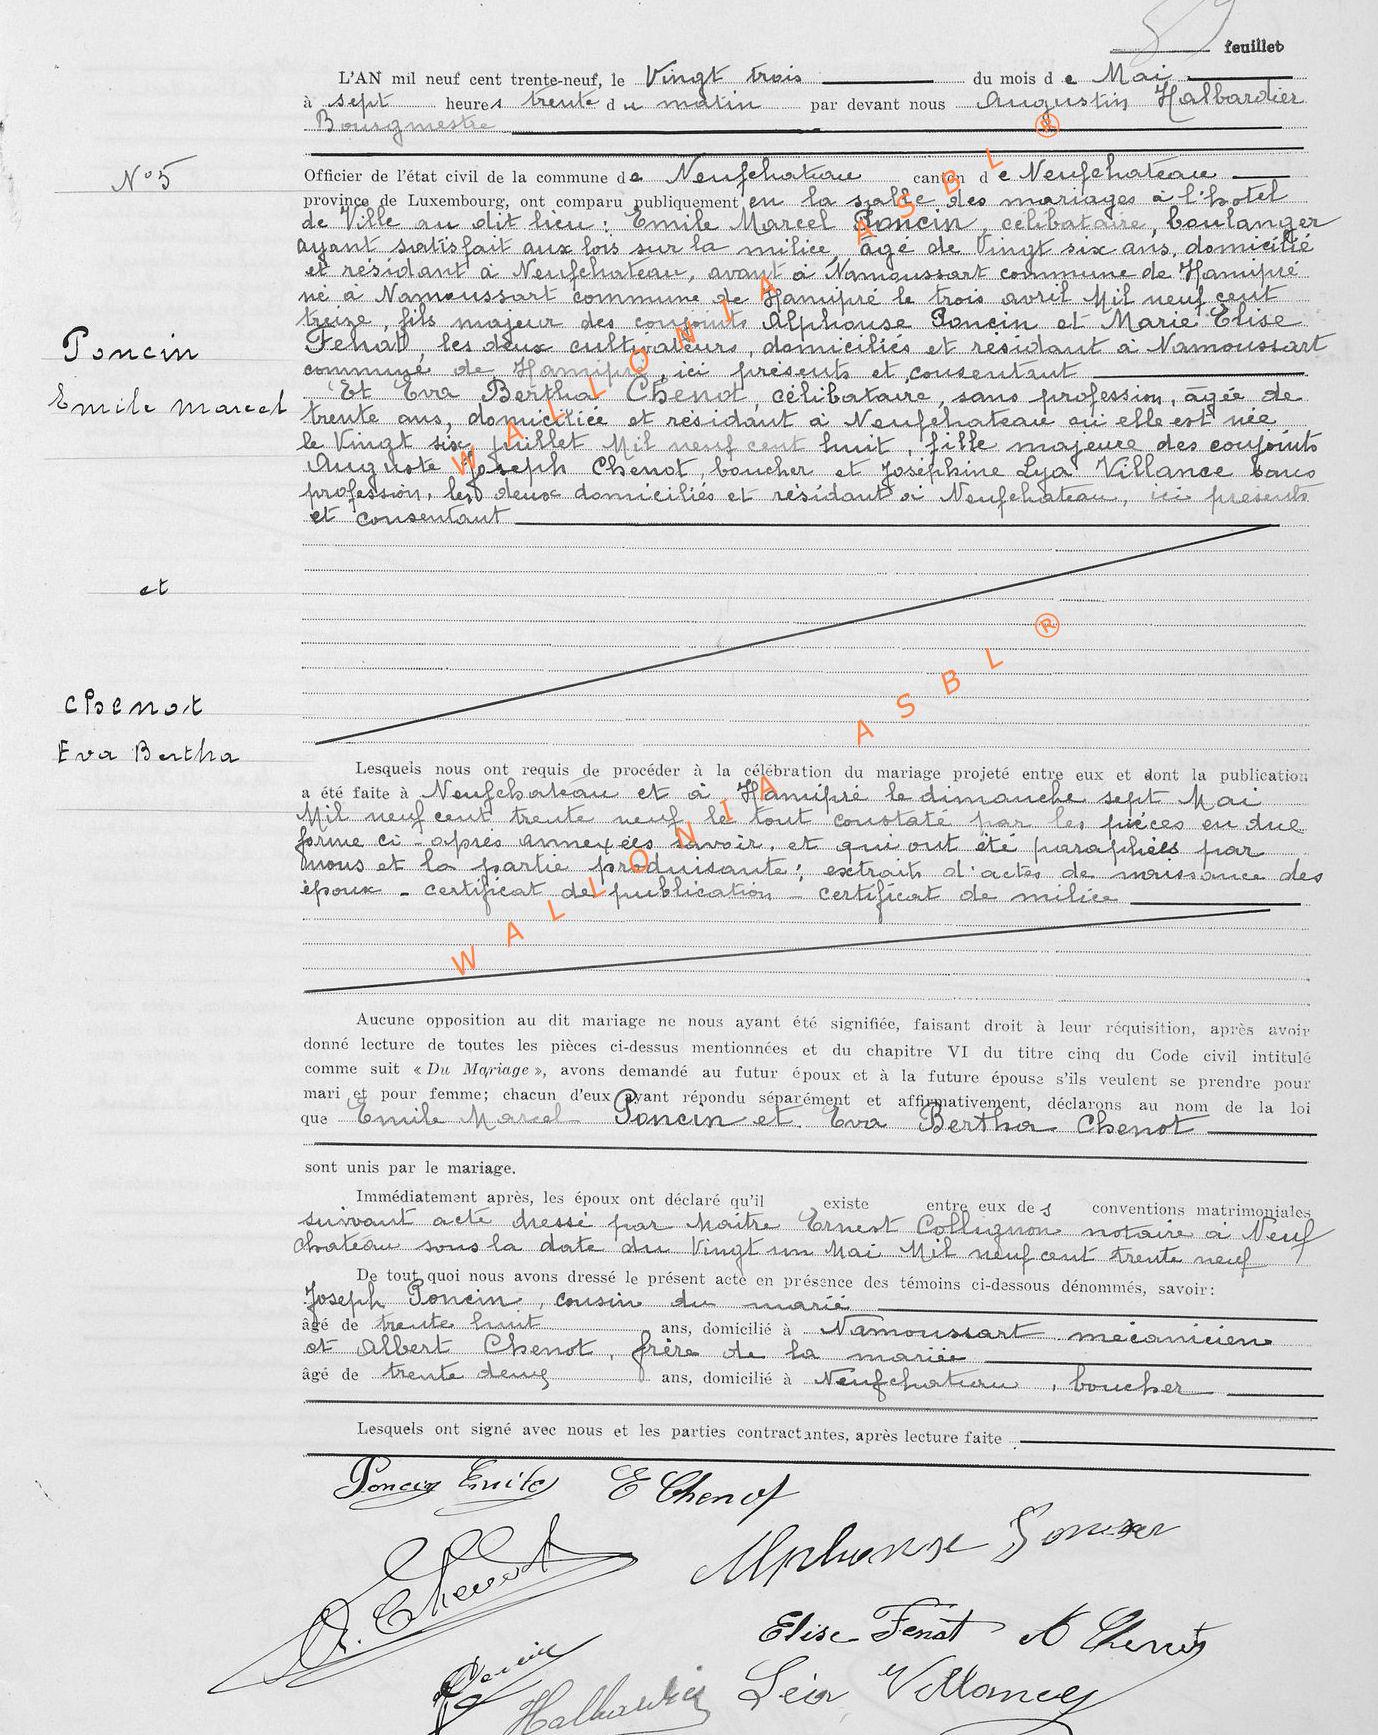 feuillet
L'AN mil neuf cent trente-neuf, le Vingt trois du mois de Mai
à sept heures trente du matin par devant nous Augustin Halbardier
Bourgmestre
N°5
Officier de l'état civil de la commune de Neufchateau canton de Neufchateau
province de Luxembourg, ont comparu publiquement en la salle des mariages à l'hotel
de Ville au dit lieu : Emile Marcel Poncin, célibataire, boulanger
ayant satisfait aux lois sur la milice, âgé de Vingt six ans, domicilié
et résidant à Neufchateau, avant à Namoussart commune de Hamipré
né à Namoussart commune de Hamipré le trois avril Mil neuf cent
treize, fils majeur des conjoints Alphonse Poncin et Marie Elise
Fenat, les deux cultivateurs, domiciliés et résidant à Namoussart
commune de Hamipré, ici présents et consentant
Poncin
Emile Marcel
Et Eva Bertha Chenot, célibataire, sans profession, âgée de
trente ans, domiciliée et résidant à Neufchateau où elle est née
le Vingt six juillet Mil neuf cent huit, fille majeure des conjoints
Auguste Joseph Chenot, boucher et Joséphine Lya Villance sans
profession, les deux domiciliés et résidant à Neufchateau, ici présents
et consentant
et
Chenot
Eva Bertha
Lesquels nous ont requis de procéder à la célébration du mariage projeté entre eux et dont la publication
a été faite à Neufchateau et à Hamipré le dimanche sept Mai
Mil neuf cent trente neuf le tout constaté par les pièces en due
forme ci-après annexées savoir, et qui ont été paraphées par
nous et la partie produisante ; extraits d'actes de naissance des
époux - certificat de publication - certificat de milice
WALLONIA ASBL ®
WALLONIA ASBL ®
Aucune opposition au dit mariage ne nous ayant été signifiée, faisant droit à leur réquisition, après avoir
donné lecture de toutes les pièces ci-dessus mentionnées et du chapitre VI du titre cinq du Code civil intitulé
comme suit « Du Mariage », avons demandé au futur époux et à la future épouse s'ils veulent se prendre pour
mari et pour femme; chacun d'eux ayant répondu séparément et affirmativement, déclarons au nom de la loi
que Emile Marcel Poncin et Eva Bertha Chenot
sont unis par le mariage.
Immédiatement après, les époux ont déclaré qu'il existe entre eux des conventions matrimoniales
suivant acte dressé par Maitre Ernest Collignon notaire à Neuf
chateau sous la date du Vingt un Mai Mil neuf cent trente neuf
De tout quoi nous avons dressé le présent acte en présence des témoins ci-dessous dénommés, savoir:
Joseph Poncin, cousin du marié
âgé de trente huit ans, domicilié à Namoussart mécanicien
et Albert Chenot, frère de la mariée
âgé de trente deux ans, domicilié à Neufchateau, boucher
Lesquels ont signé avec nous et les parties contractantes, après lecture faite.
Poncin Emile E Chenot
Alphonse Poncin
A. Chenot
Elise Fenat A Chenot
Poncin
Halbardier Léa Villance